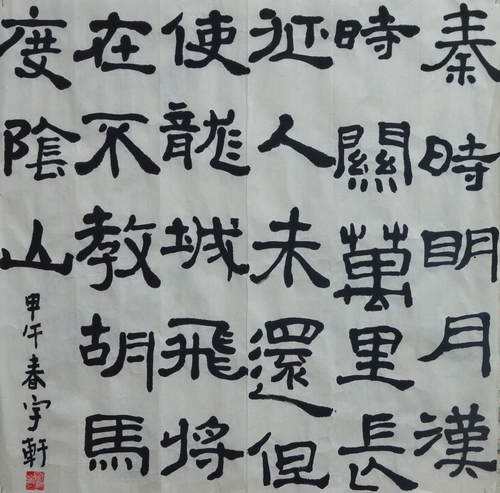 秦時明月漢
時關萬里長
征人未還但
使龍城飛將
在不教胡馬
度陰山
甲午春宇軒